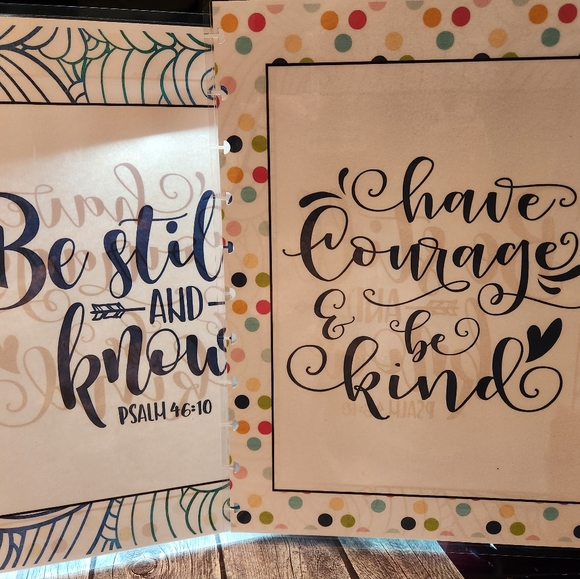 Be stil
AND
know
PSALM 46:10
have
Courage
& be
kind